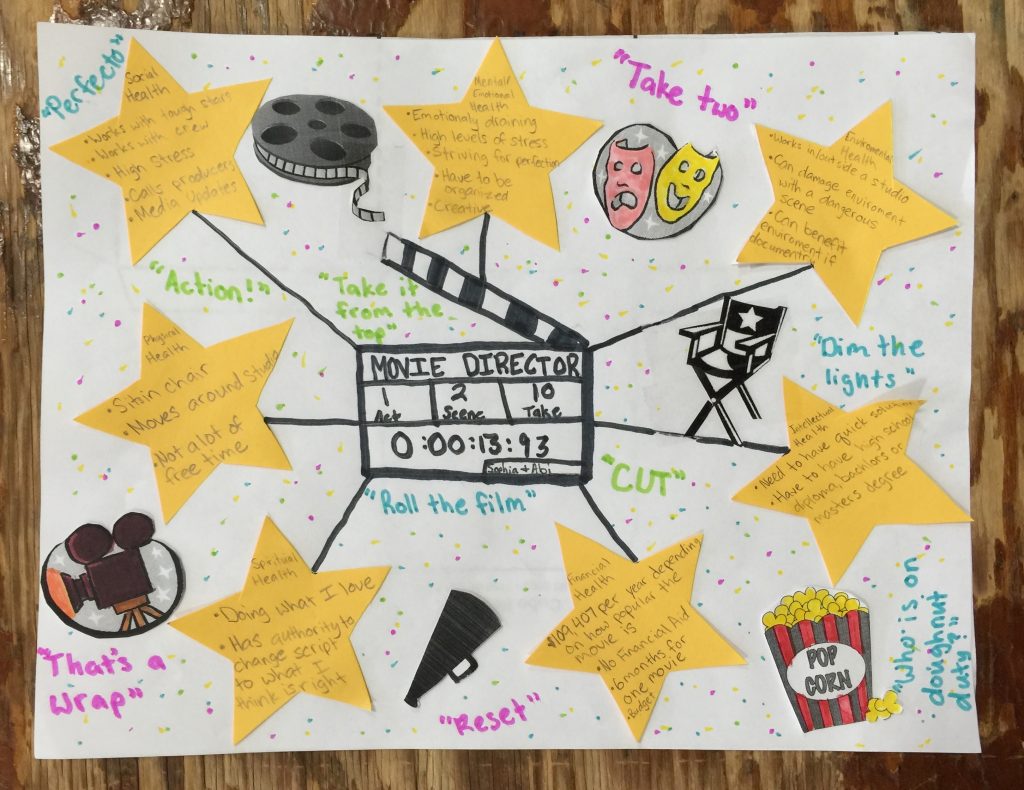 "Perfecto"
Social
Health
• Works with tough stars
• Works with crew
• High stress
• Calls producers
• Media updates
Mental/
Emotional
Health
• Emotionaly draining
• High levels of stress
• Striving for perfection
• Have to be
organized
• Creative
"Take two"
Enviromental
Health
• Works in/outside a studio
• Can damage enviroment
with a dangerous
scene
• Can benefit
enviroment if
documentry
"Action!"
"Take it
from the
top"
Physical
Health
• Sits in chair
• Moves around studio
• Not a lot of
free time
MOVIE DIRECTOR
1 2 10
Act Scene Take
0:00:13:93
Sophia + Abi
"Dim the
lights"
Intellectual
Health
• Need to have quick solutions
• Have to have high school
diploma, bachlors or
masters degree
"Roll the film"
"CUT"
Spiritual
Health
• Doing what I love
• Has authority to
change script
to what I
think is right
Financial
Health
$109,407 per year depending
on how popular the
movie is
• No Financial Aid
• 6 months for
one movie
• Budget
"That's a
Wrap"
"Reset"
POP
CORN
"Who is on
doughnut
duty?"